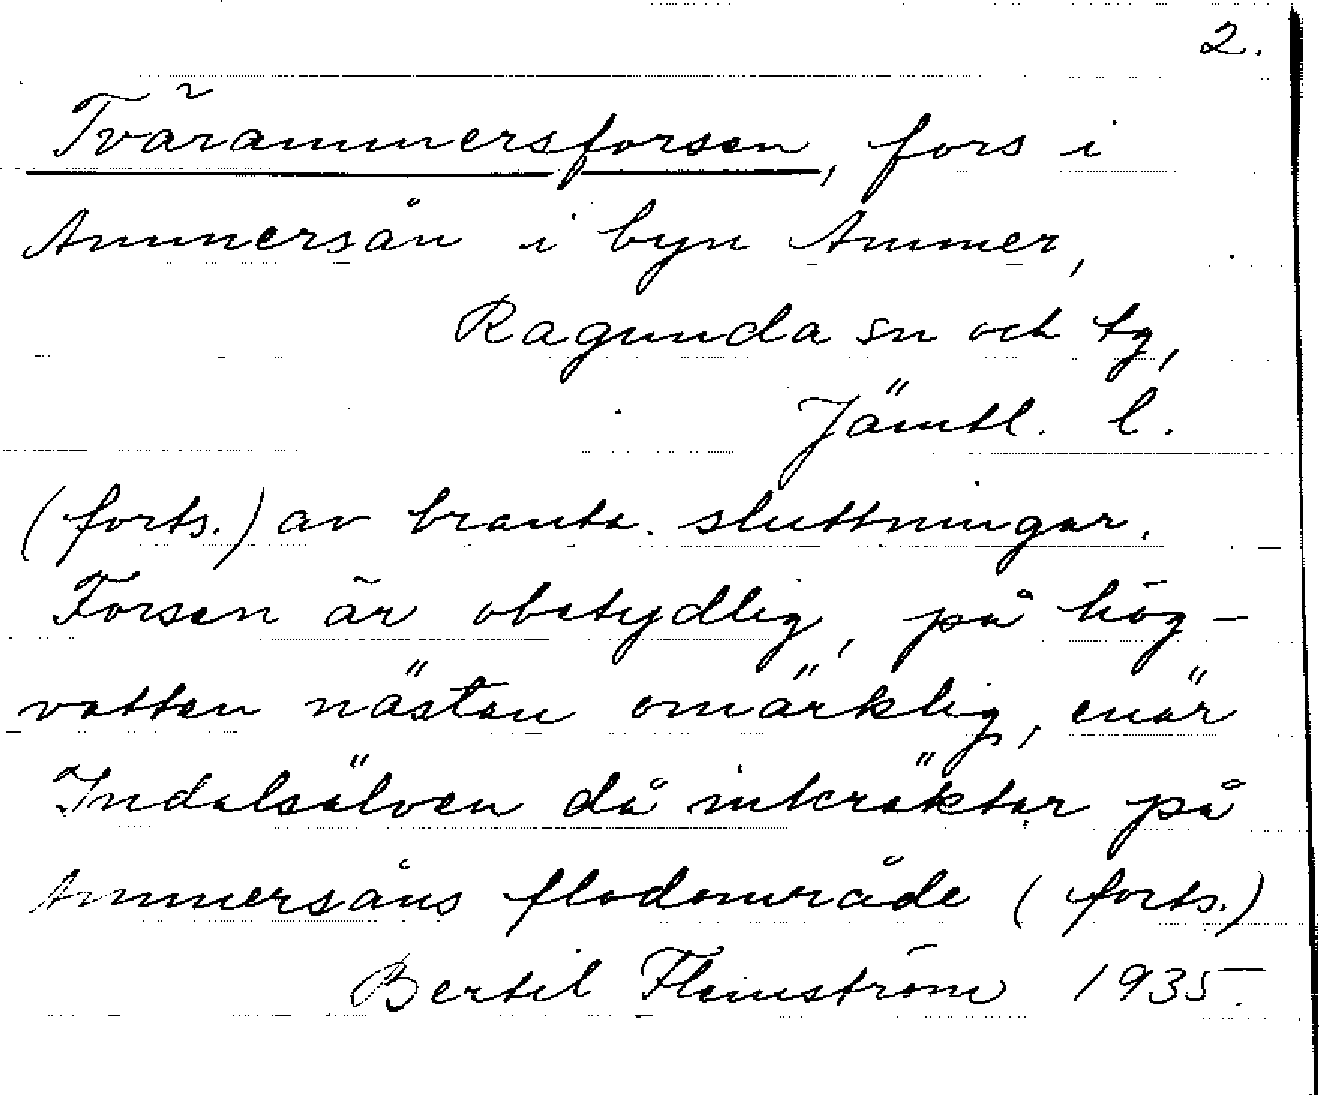 2.
Tvärammersforsen, fors i
Ammersån i byn Ammer,
Ragunda sn och tg,
Jämtl. l.
(forts.) av branta sluttningar.
Forsen är obetydlig, på hög-
vatten nästan omärklig, enär
Indalsälven då inkräktar på
Ammersåns flodområde (forts.)
Bertil Flemström 1935.